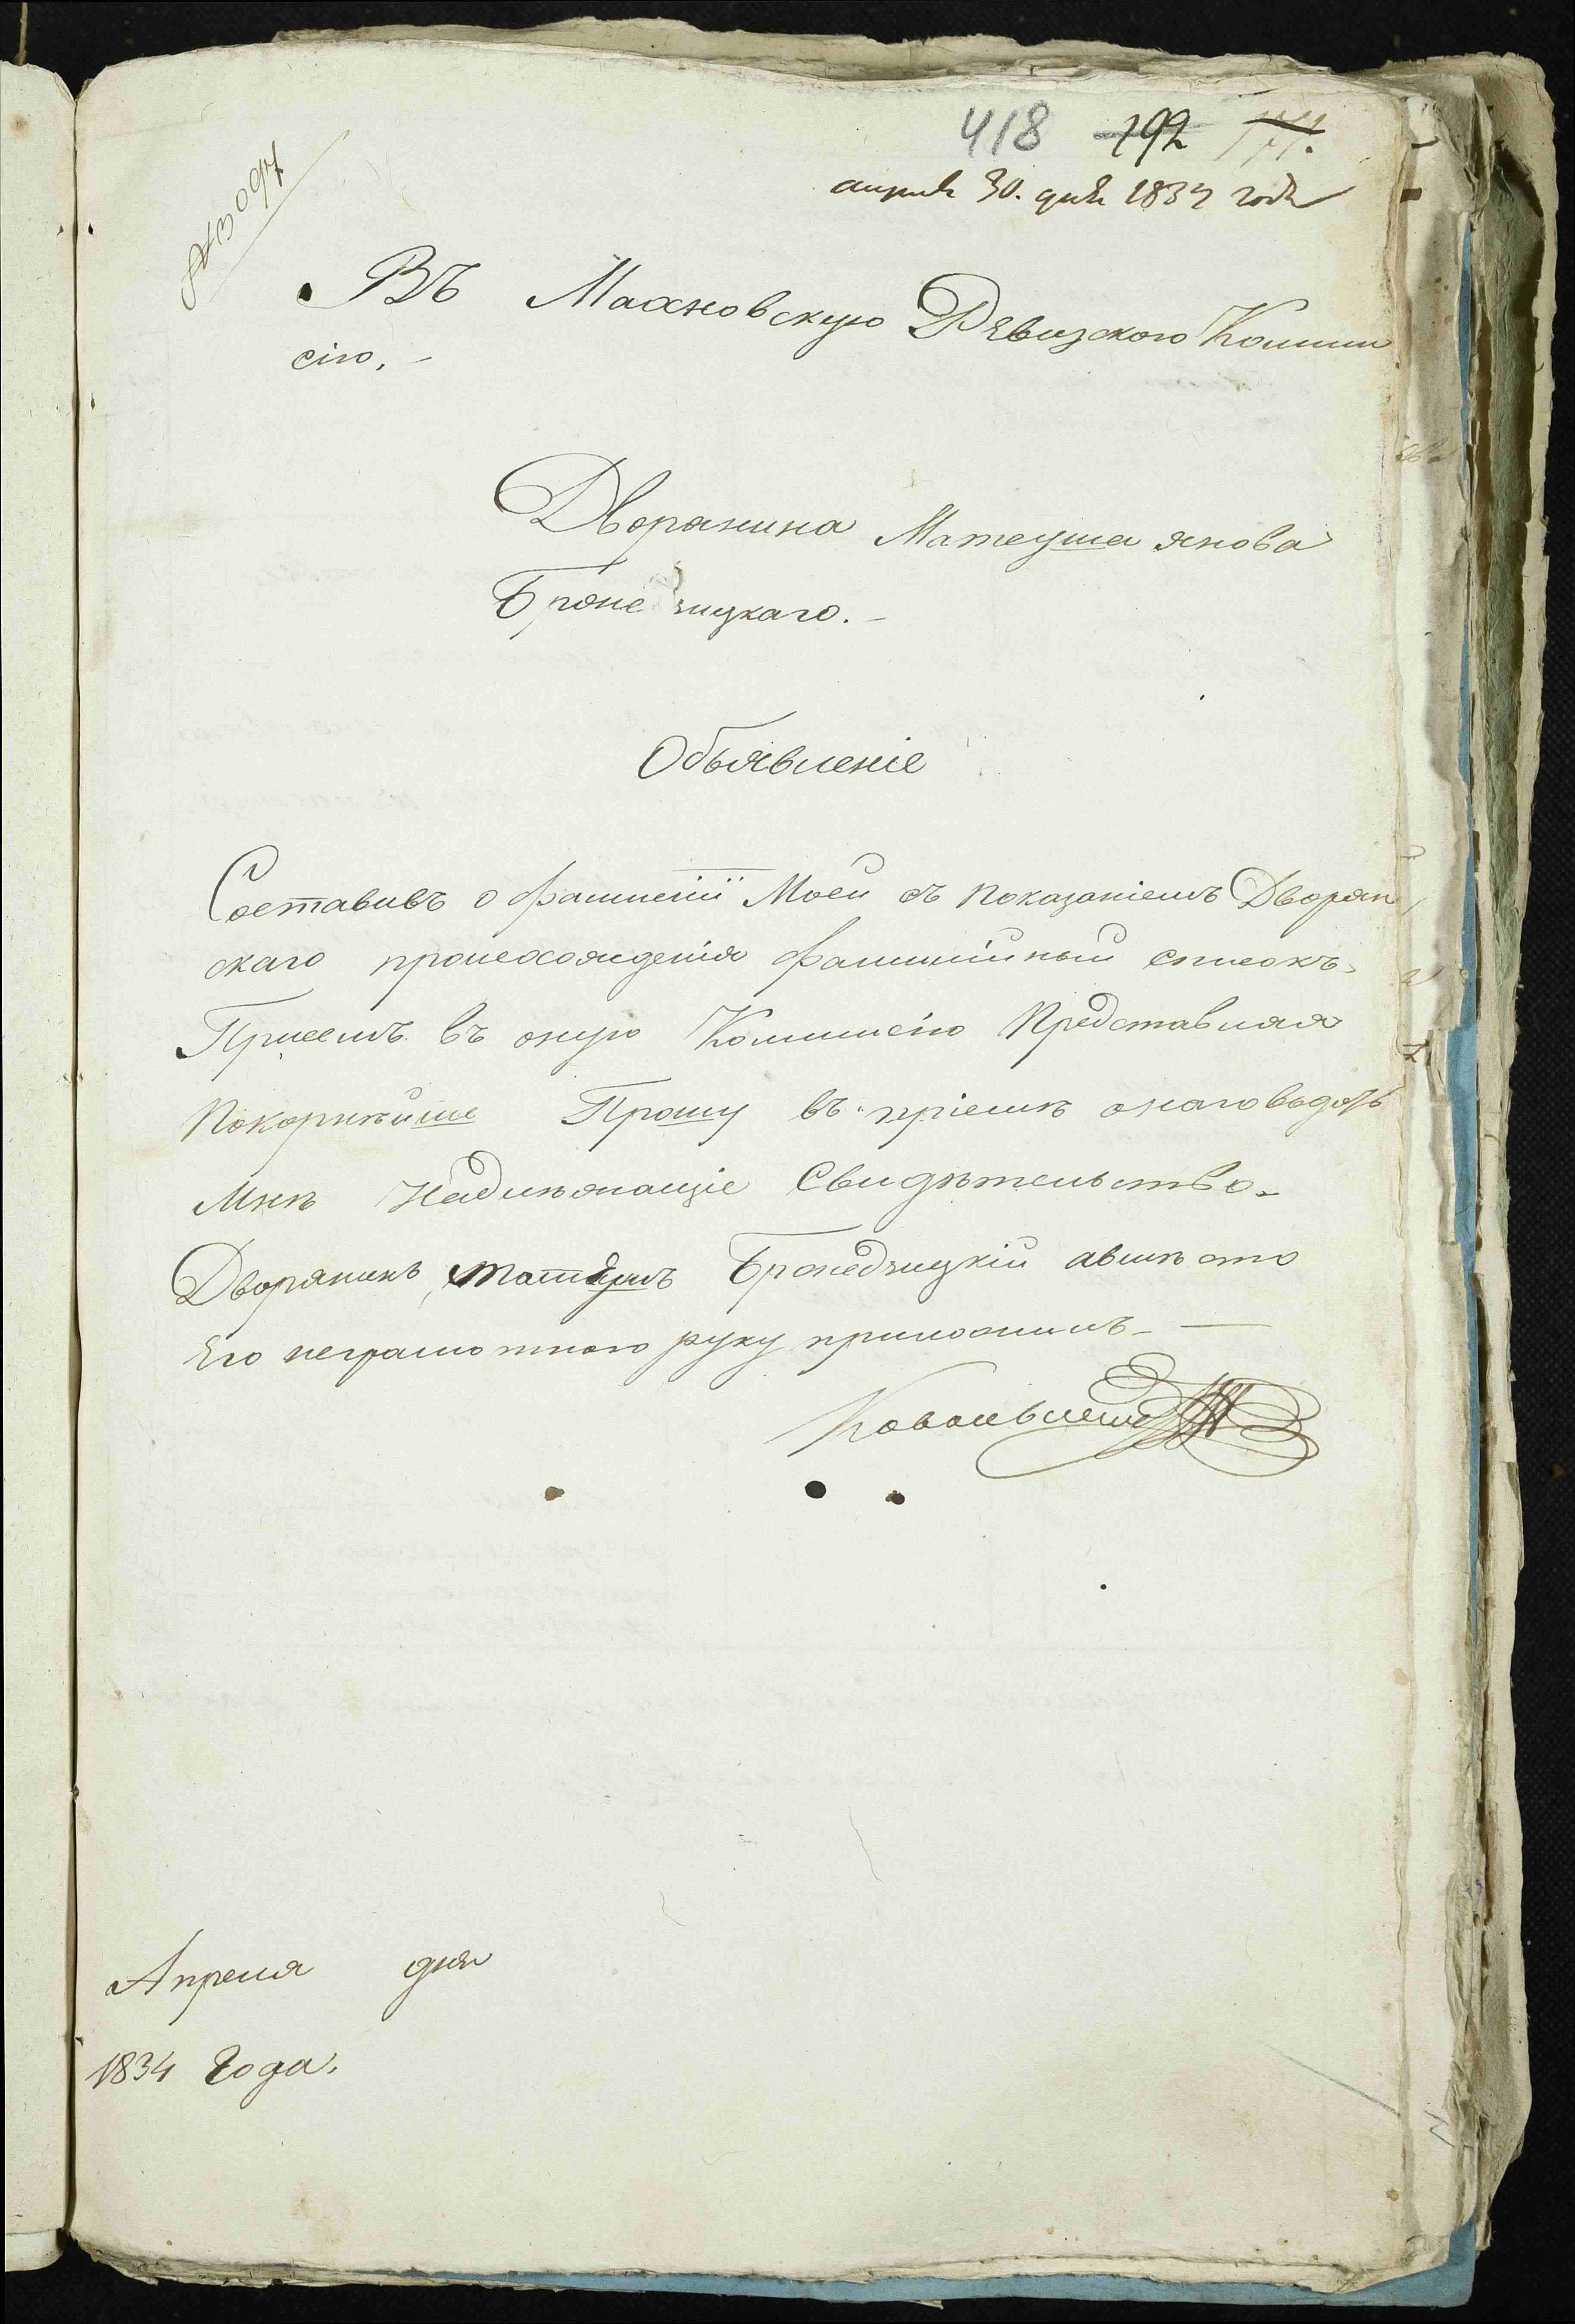 418 192 171.
априля 30. дня 1834 года
№ 3097
Въ Махновскую Ревизскою Комми
сію.
Дворянина Матеуша янова
Бронедзицкаго.
Объявленіе
Составивъ о фамиліи Моей съ показаніемъ Дворян
скаго происхожденія фамилійный списокъ
Присемъ въ оную Коммисію Представляя
Покорнѣйше Прошу въ пріемѣ онаго выдать
Мнѣ Надлежащіе Свидѣтельство
Дворянинъ Матеушъ Бронедзицкій авмѣсто
Его неграмотнаго руку приложилъ
Апреля дня
1834 Года.